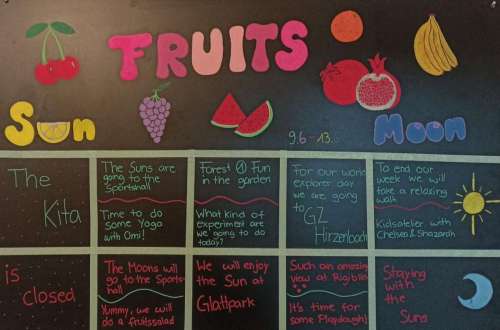 FRUITS
Sun
9.6-13..
Moon
The
Kita
The Suns are
going to the
Sportshall
Time to do
some Yoga
with Omi!
Forest & Fun
in the garden
What kind of
experiment are
we going to do
today?
For our world
explorer day
we are going
to GZ
Hirzenbach
To end our
week we will
take a relaxing
walk
Kidsatelier with
Chelsea & Shazarah
is
closed
The Moons will
go to the Sports-
hall
Yummy, we will
do a fruitsalad
We will enjoy
the Sun at
Glattpark
Such an amazing
view at Rigiblick
It's time for
some Playdough!
Staying
with
the
Suns